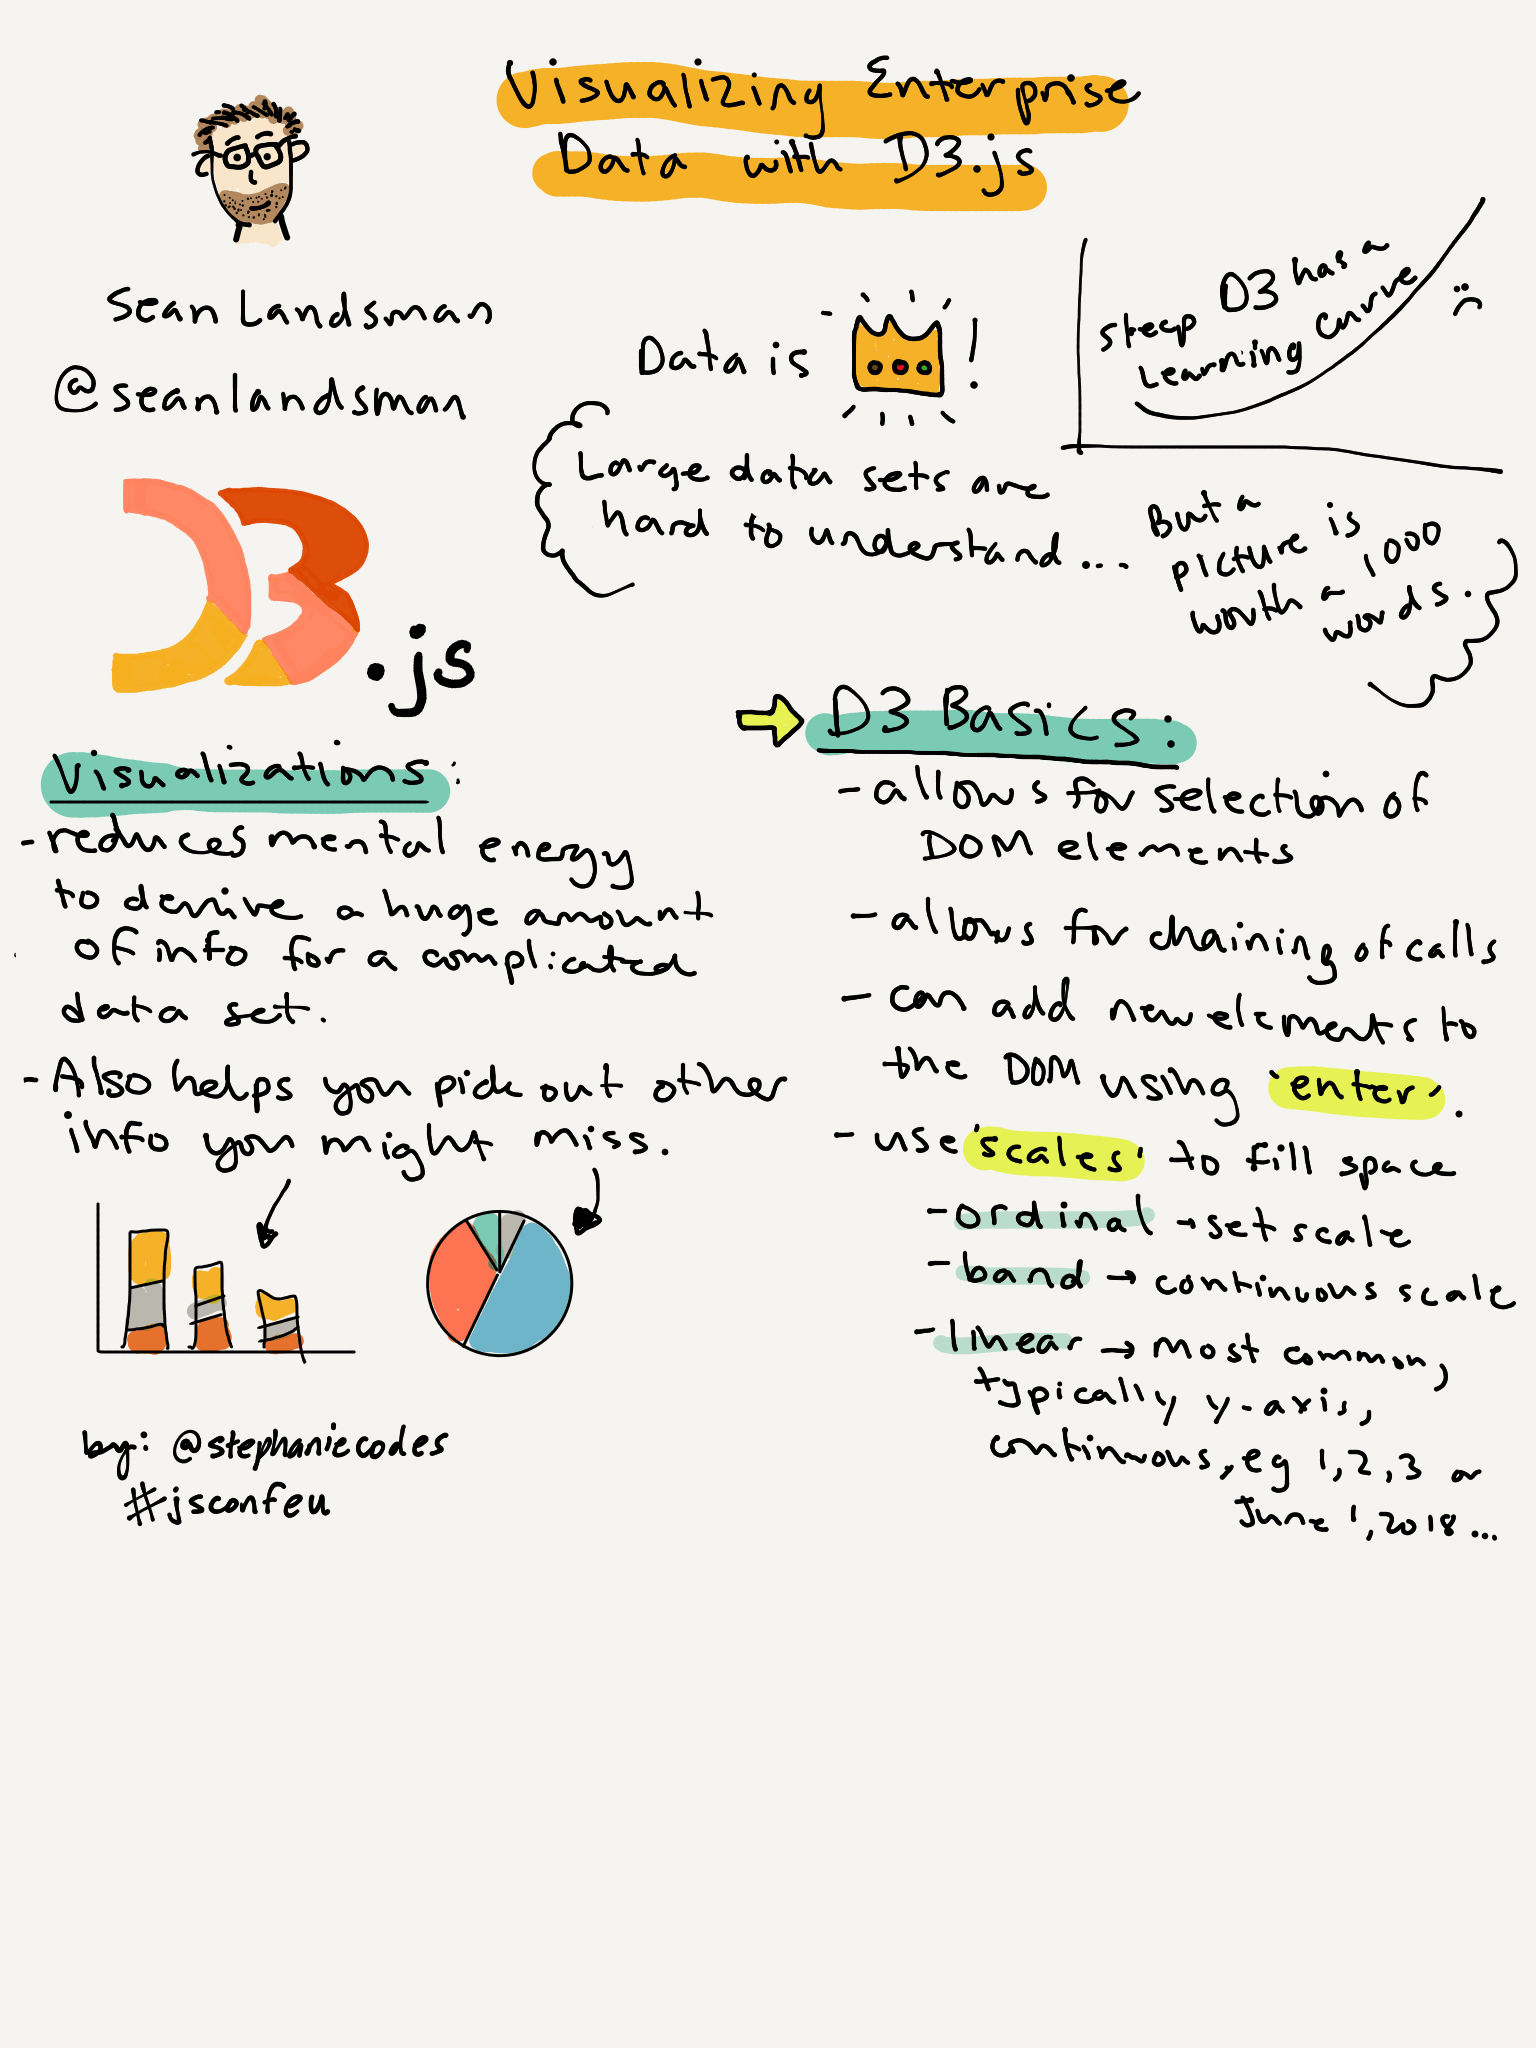 Visualizing Enterprise
Data with D3.js
Sean Landsman
@seanlandsman
Data is !
D3 has a
steep
Learning curve
Large data sets are
hard to understand...
But a
picture is
worth a 1000
words.
D3.js
Visualizations:
- reduces mental energy
to derive a huge amount
of info for a complicated
data set.
- Also helps you pick out other
info you might miss.
by: @stephaniecodes
#jsconfeu
D3 Basics:
- allows for selection of
DOM elements
- allows for chaining of calls
- can add new elements to
the DOM using 'enter'.
- use 'scales' to fill space
- ordinal → set scale
- band → continuous scale
- linear → most common,
typically y-axis,
continuous, eg 1,2,3 or
June 1, 2018...